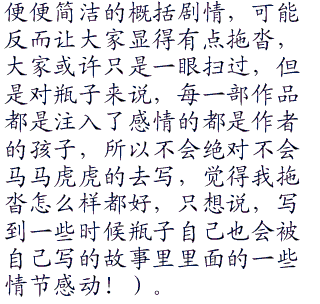 便便简洁的概括剧情，可能
反而让大家显得有点拖沓，
大家或许只是一眼扫过，但
是对瓶子来说，每一部作品
都是注入了感情的都是作者
的孩子，所以不会绝对不会
马马虎虎的去写，觉得我拖
沓怎么样都好，只想说，写
到一些时候瓶子自己也会被
自己写的故事里里面的一些
情节感动！）。